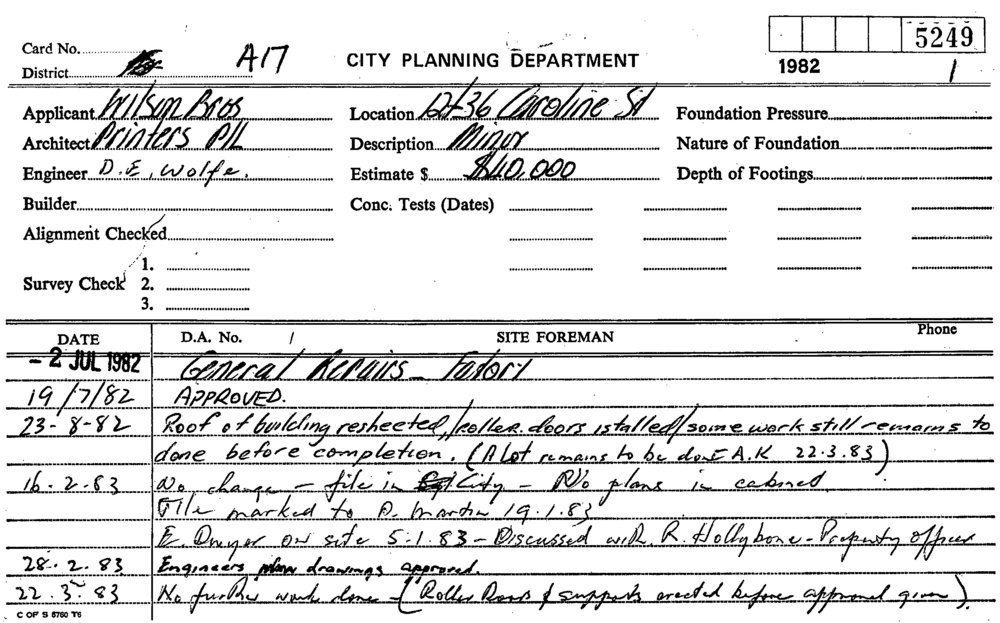 Card No.
District A17 CITY PLANNING DEPARTMENT 5249
1982 1
Applicant Wilson Bros Location 12-36 Caroline St Foundation Pressure
Architect Printers P/L Description Minor Nature of Foundation
Engineer D.E. Wolfe. Estimate $ $40,000 Depth of Footings
Builder Conc. Tests (Dates)
Alignment Checked
1.
Survey Check 2.
3.
DATE D.A. No. / SITE FOREMAN Phone
- 2 JUL 1982 General Repairs - Factory
19/7/82 APPROVED.
23-8-82 Roof of building resheeted, /roller doors istalled/ some work still remains to
done before completion. (A lot remains to be done A.K 22.3.83)
16-2-83 No change - file in City - No plans in cabinet
File marked to D. Martin 19.1.83
E. Dwyer on site 5-1.83 - Discussed with R. Hollybone - Property officer
28.2.83 Engineers drawings approved.
22.3.83 No further work done - (Roller Doors & supports erected before approval given).
C OF S 5760 T6